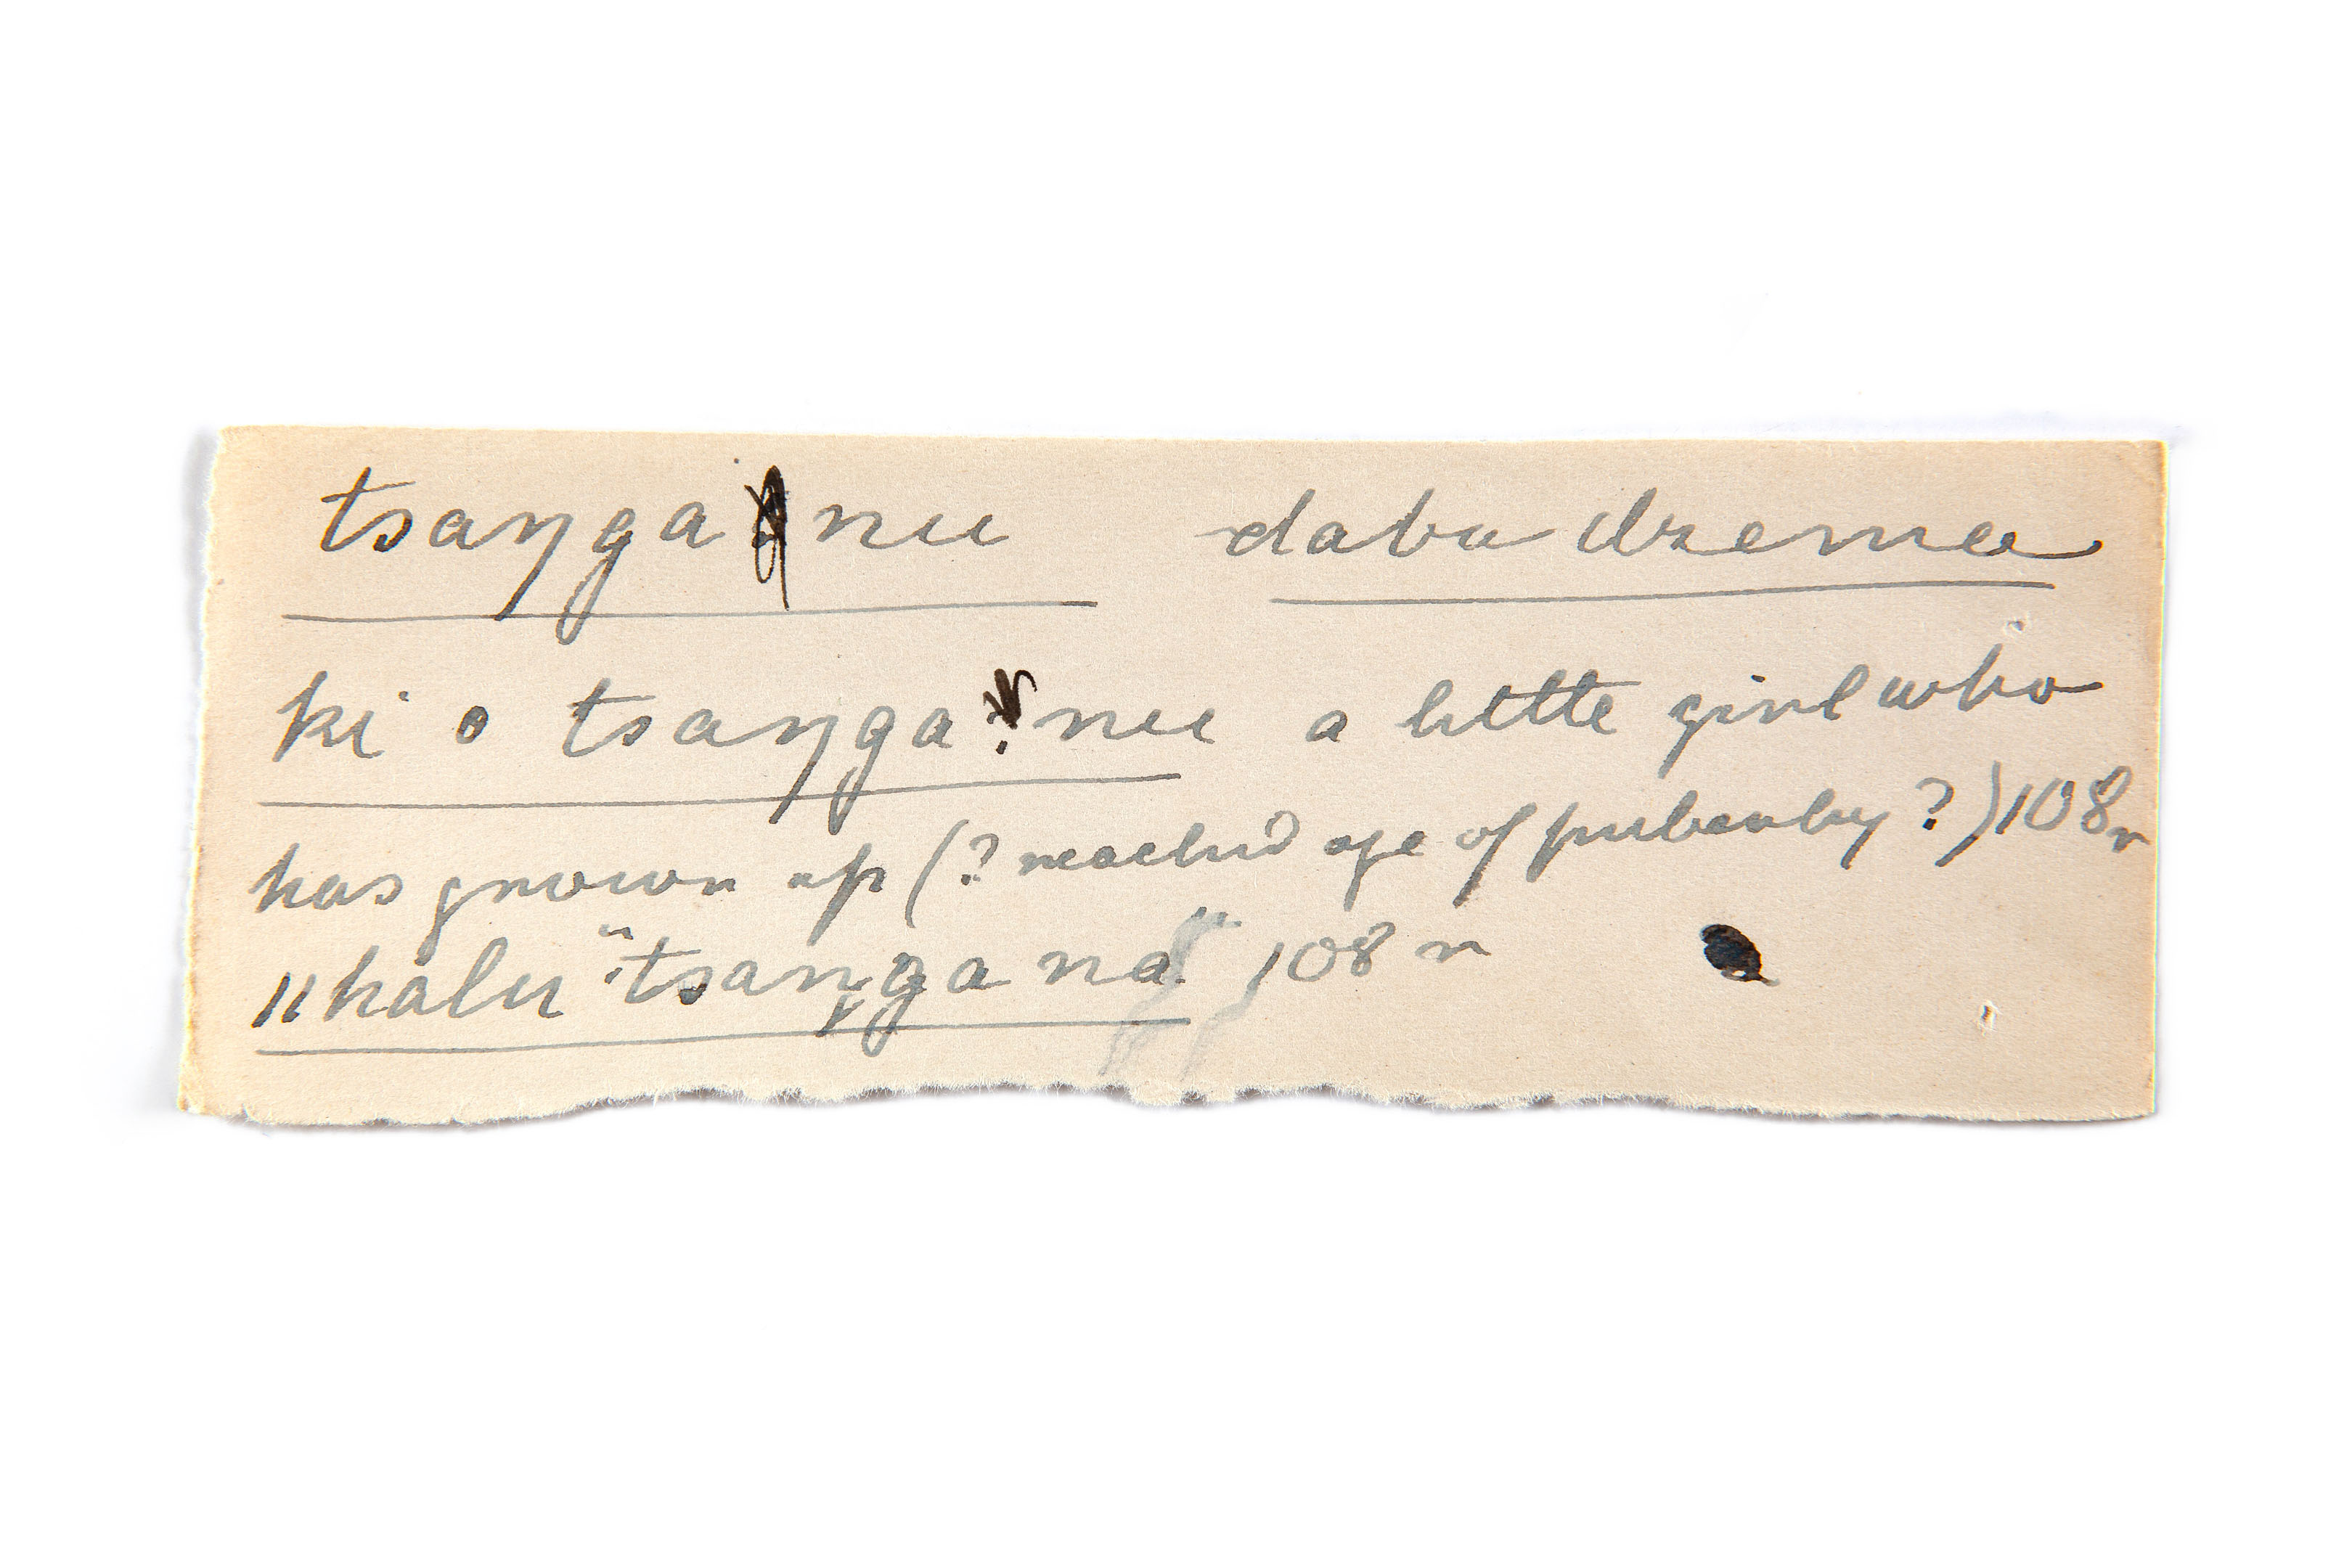 tsaŋga nu daba dzema
ki o tsaŋga nu a little girl who
has grown up (? reached age of puberty ?) 108 r
"halu "tsaŋga na" 108 r